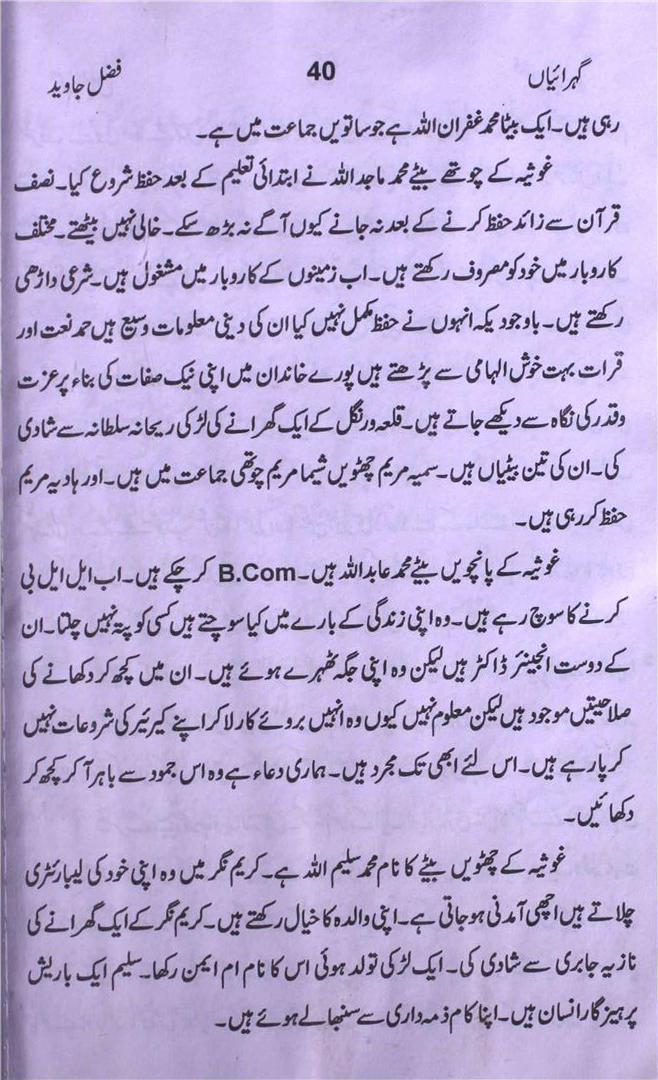 گہرائیاں 40 فضل جاوید
رہی ہیں۔ ایک بیٹا محمد غفران اللہ ہے جو ساتویں جماعت میں ہے۔
غوثیہ کے چوتھے بیٹے محمد ماجد اللہ نے ابتدائی تعلیم کے بعد حفظ شروع کیا۔ نصف
قرآن سے زائد حفظ کرنے کے بعد نہ جانے کیوں آگے نہ بڑھ سکے۔ خالی نہیں بیٹھتے۔ مختلف
کاروبار میں خود کو مصروف رکھتے ہیں۔ اب زمینوں کے کاروبار میں مشغول ہیں۔ شرعی داڑھی
رکھتے ہیں۔ باوجود یکہ انہوں نے حفظ مکمل نہیں کیا ان کی دینی معلومات وسیع ہیں حمد نعت اور
قرات بہت خوش الہامی سے پڑھتے ہیں پورے خاندان میں اپنی نیک صفات کی بناء پر عزت
وقدر کی نگاہ سے دیکھے جاتے ہیں۔ قلعہ ورنگل کے ایک گھرانے کی لڑکی ریحانہ سلطانہ سے شادی
کی۔ ان کی تین بیٹیاں ہیں۔ سمیہ مریم چھٹویں شیما مریم چوتھی جماعت میں ہیں۔ اور ہادیہ مریم
حفظ کر رہی ہیں۔
غوثیہ کے پانچویں بیٹے محمد عابد اللہ ہیں۔ B.Com کر چکے ہیں۔ اب ایل ایل بی
کرنے کا سوچ رہے ہیں۔ وہ اپنی زندگی کے بارے میں کیا سوچتے ہیں کسی کو پتہ نہیں چلتا۔ ان
کے دوست انجینئر ڈاکٹر ہیں لیکن وہ اپنی جگہ ٹھہرے ہوئے ہیں۔ ان میں کچھ کر دکھانے کی
صلاحیتیں موجود ہیں لیکن معلوم نہیں کیوں وہ انہیں بروئے کار لا کر اپنے کیرئیر کی شروعات نہیں
کر پا رہے ہیں۔ اس لئے ابھی تک مجرد ہیں۔ ہماری دعاء ہے وہ اس جمود سے باہر آ کر کچھ کر
دکھائیں۔
غوثیہ کے چھٹویں بیٹے کا نام محمد سلیم اللہ ہے۔ کریم نگر میں وہ اپنی خود کی لیبارئٹری
چلاتے ہیں اچھی آمدنی ہو جاتی ہے۔ اپنی والدہ کا خیال رکھتے ہیں۔ کریم نگر کے ایک گھرانے کی
نازیہ جابری سے شادی کی۔ ایک لڑکی تولد ہوئی اس کا نام ام ایمن رکھا۔ سلیم ایک باریش
پرہیز گار انسان ہیں۔ اپنا کام ذمہ داری سے سنبھالے ہوئے ہیں۔